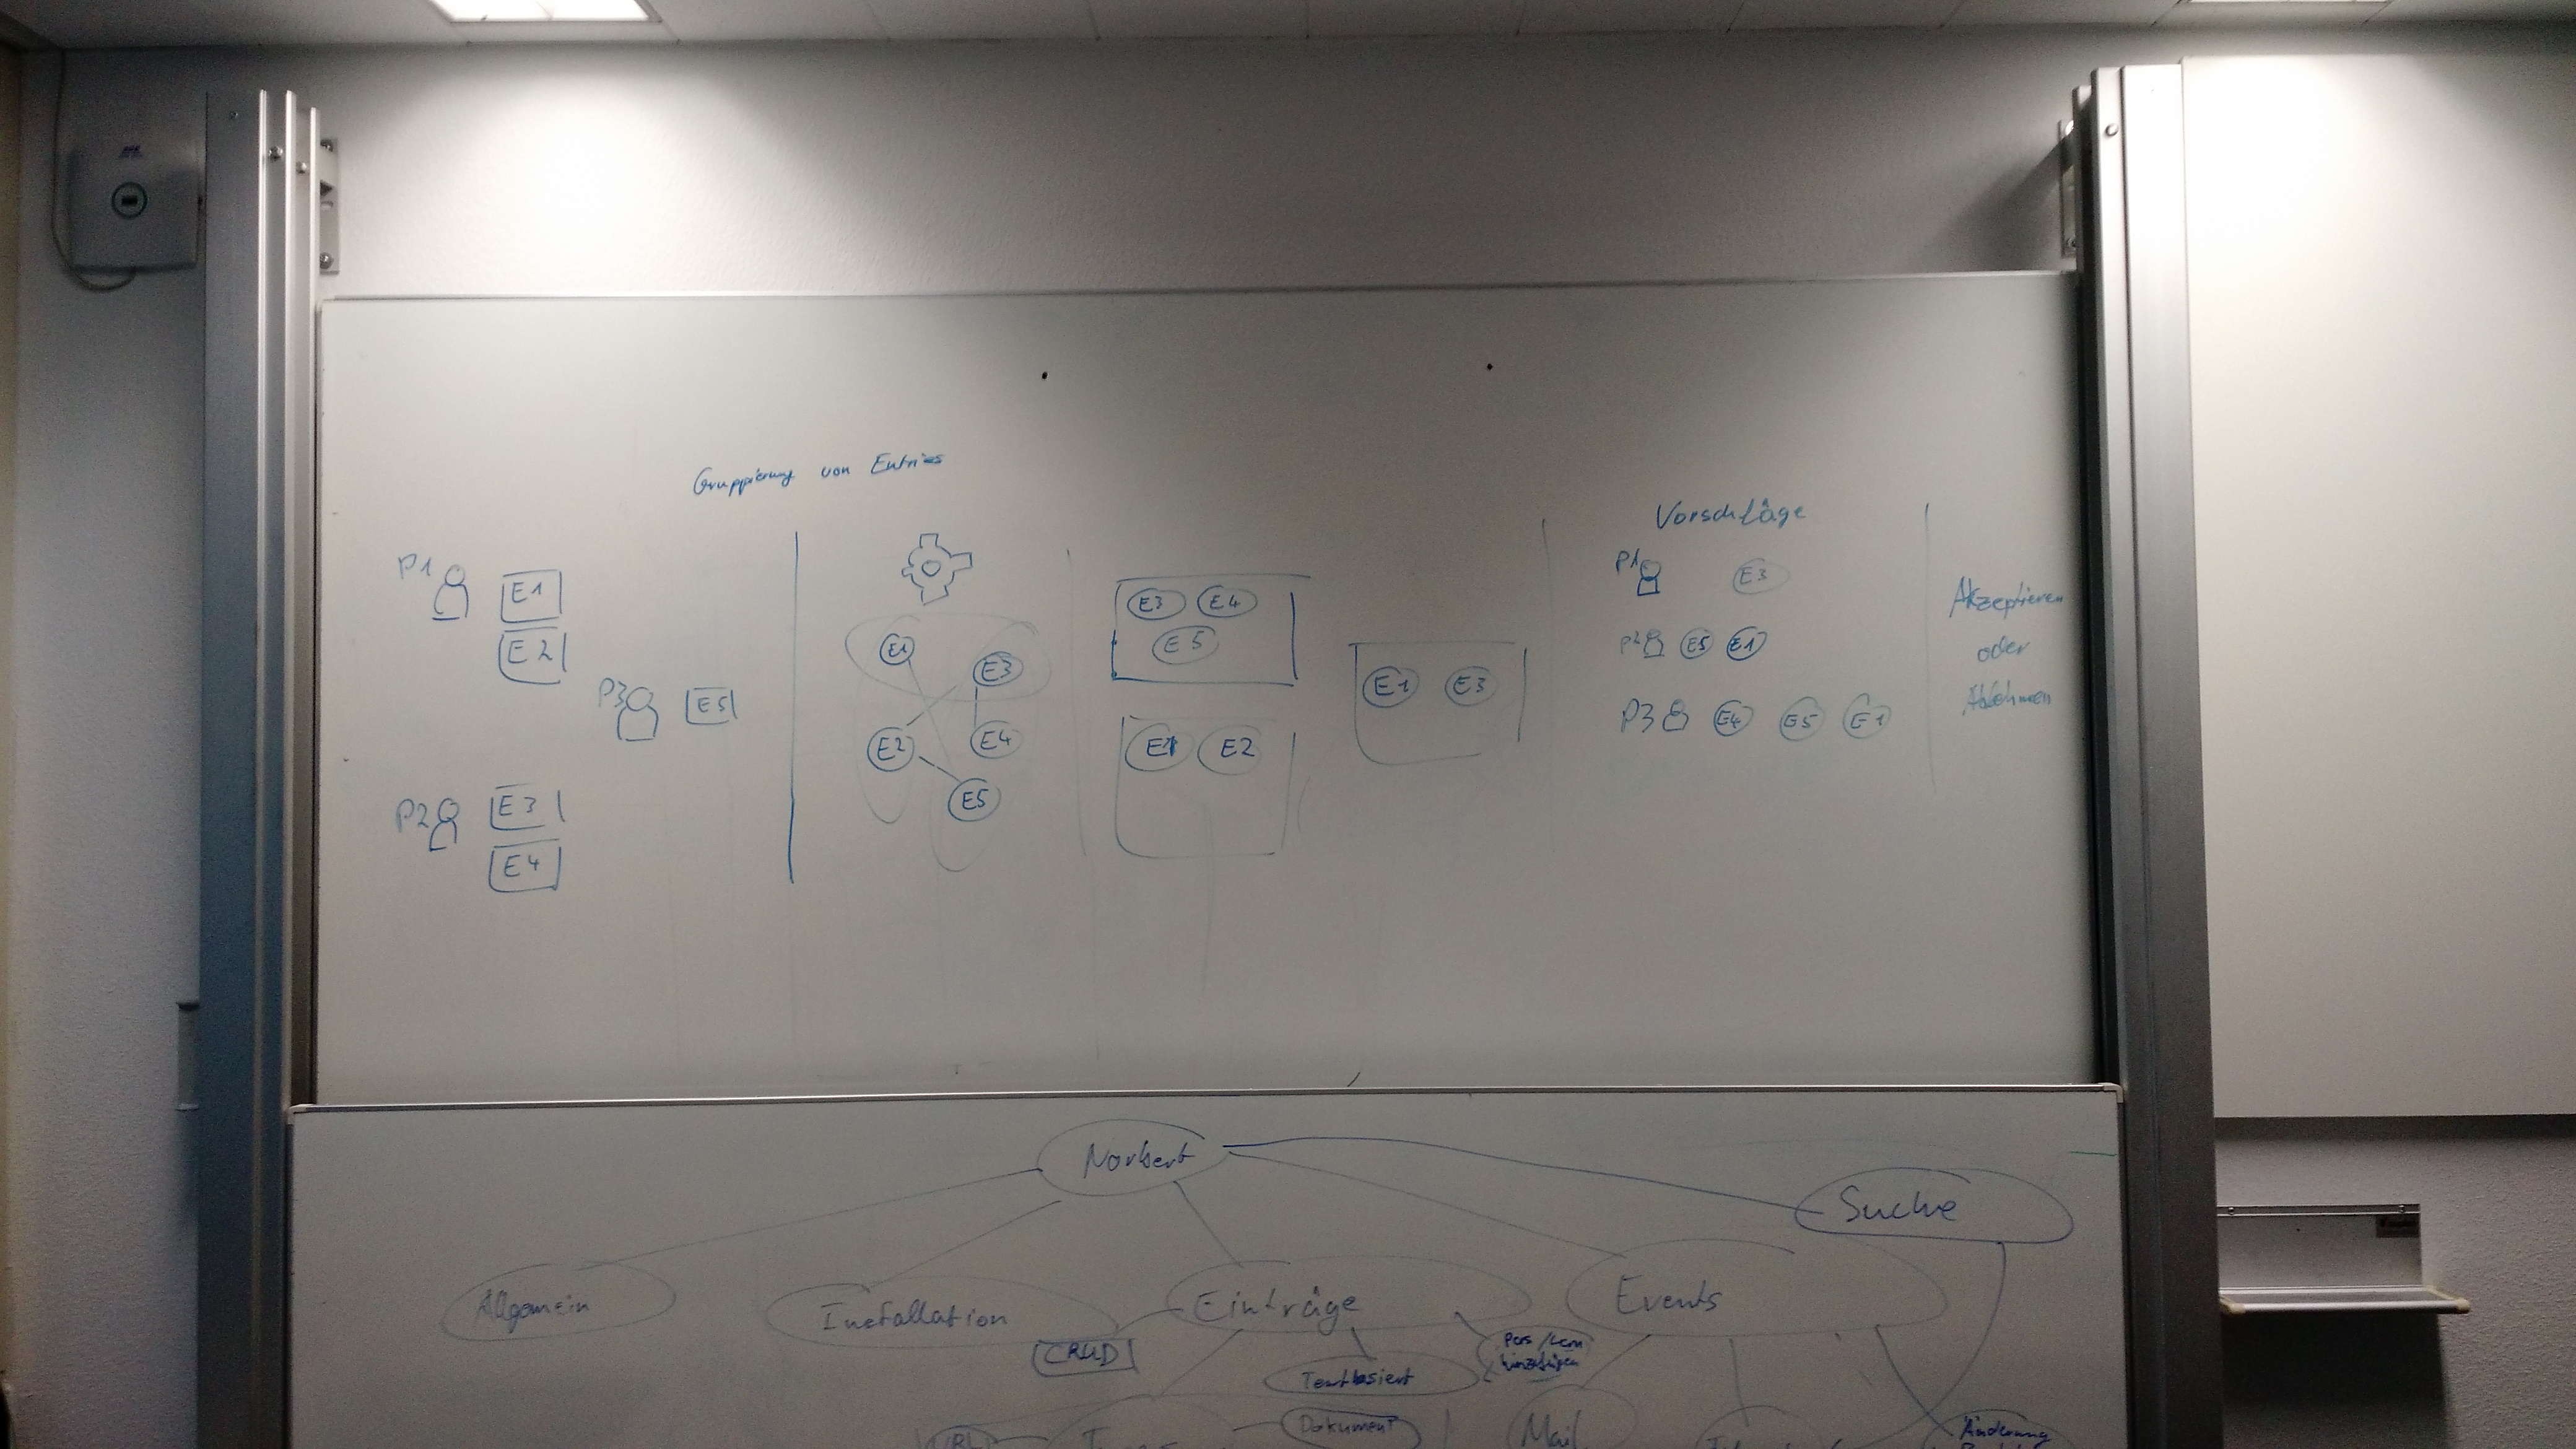 Gruppierung von Entries
P1
E1
E2
P3
E5
P2
E3
E4
E1
E3
E2
E4
E5
E3 E4
E5
E1 E2
E1 E3
Vorschläge
P1 E3
P2 E5 E1
P3 E4 E5 E1
Akzeptieren
oder
Ablehnen
Norbert
Suche
Allgemein
Installation
Einträge
Events
CRUD
Textbasiert
hinzufügen
Dokument
Mail
Änderung